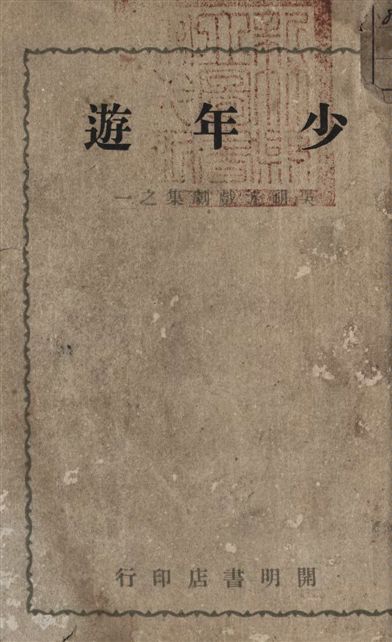 少年遊
吳祖光戲劇集之一
開明書店印行